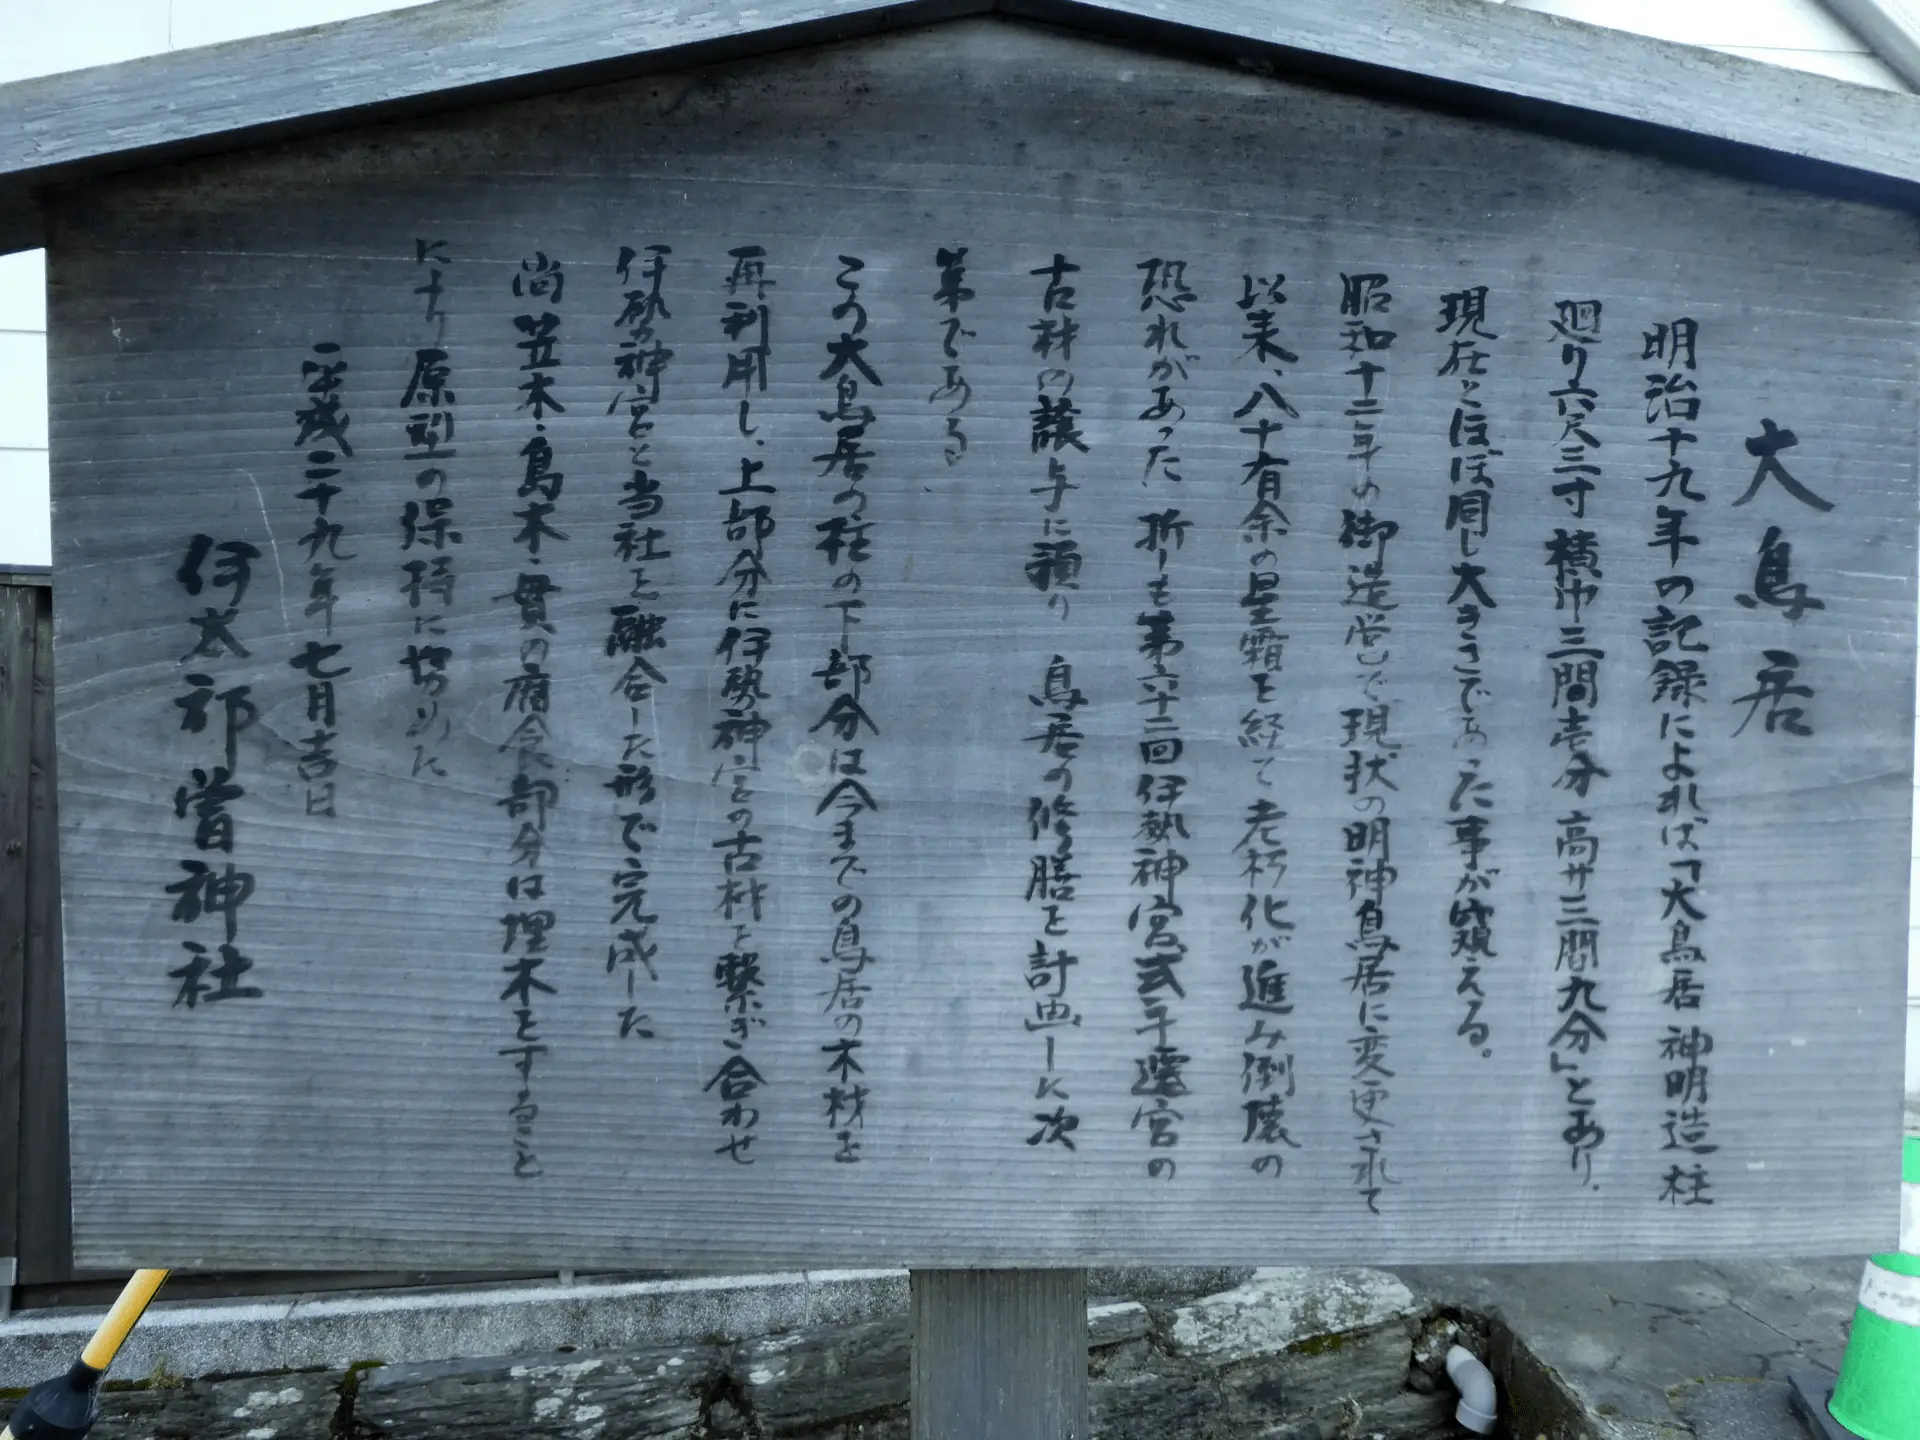 大鳥居
明治十九年の記録によれば「大鳥居 神明造 柱
廻り六尺三寸 横巾三間壱分 高サ三間九分」とあり、
現在とほぼ同じ大きさであった事が窺える。
昭和十二年の御造営で現状の明神鳥居に変更されて
以来、八十有余の星霜を経て老朽化が進み倒壊の
恐れがあった 折しも第六十二回伊勢神宮式年遷宮の
古材の譲与に預り 鳥居の修膳を計画した次
第である
この大鳥居の柱の下部分は今までの鳥居の木材を
再利用し、上部分に伊勢神宮の古材を繋ぎ合わせ
伊勢神宮と当社を融合した形で完成した
尚 笠木・島木・貫の腐食部分は埋木をすること
により原型の保持に努めた
平成二十九年七月吉日
伊太祁曽神社